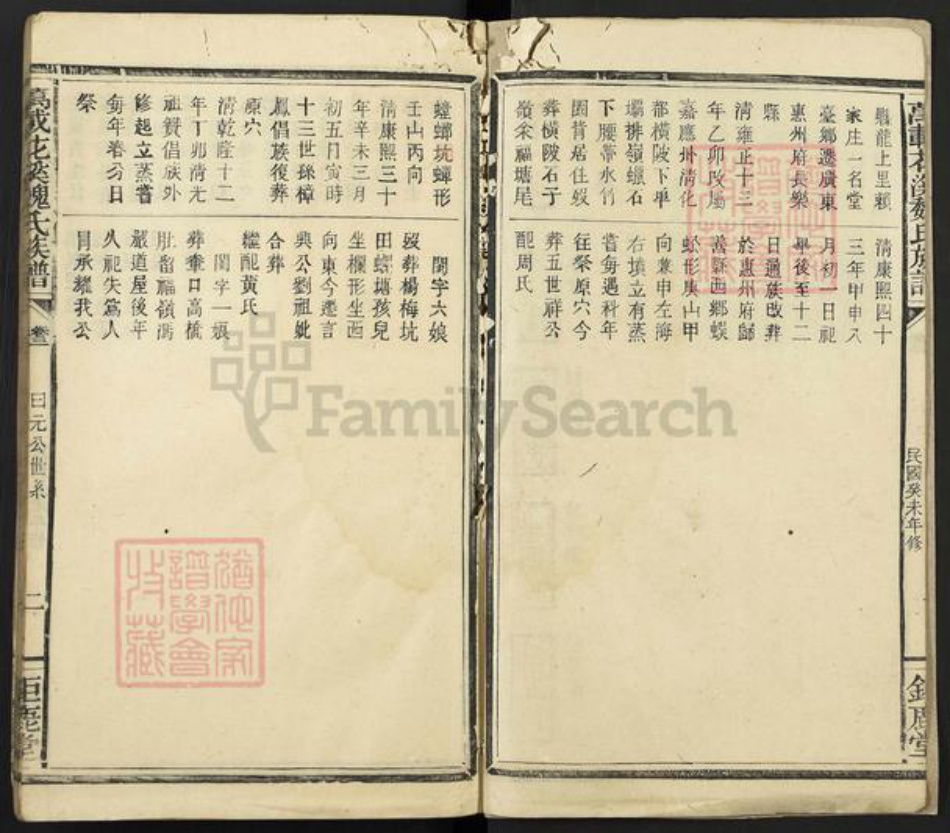 清康熙四十
三年甲申八
月初一日祀
畢後至十二
日過族改葬
於惠州府歸
善縣西鄉蜈
蚣形庚山甲
向兼申左海
右墳立有蒸
嘗每遇科年
往祭原穴今
葬五世祥公
配周氏
龍上里賴
家庄一名堂
臺鄉遷廣東
惠州府長樂
縣
清雍正十三
年乙卯改屬
嘉應州清化
都橫陂下畢
壩排嶺蠟石
下腰帶水竹
園背居住歿
葬橫陂石子
嶺汆福塘尾
民國癸未年修
鉅鹿堂
螳螂坑蟬形
壬山丙向
清康熙三十
年辛未三月
初五日寅時
十三世採樟
鳳倡族復葬
原穴
清乾隆十二
年丁卯清光
祖贊倡族外
修起立蒸嘗
每年春分日
祭
閏字六娘
歿葬楊梅坑
田螺塘孩兒
坐欄形坐西
向東今遷言
興公劉祖妣
合葬
繼配黃氏
閏字一娘
葬畬口高橋
肚留福嶺馮
嚴道屋後年
久祀失爲人
冐承耀我公
萬載花溪魏氏族譜
卷三
曰元公世系
二
鉅鹿堂
譜學會
收藏
FamilySearch